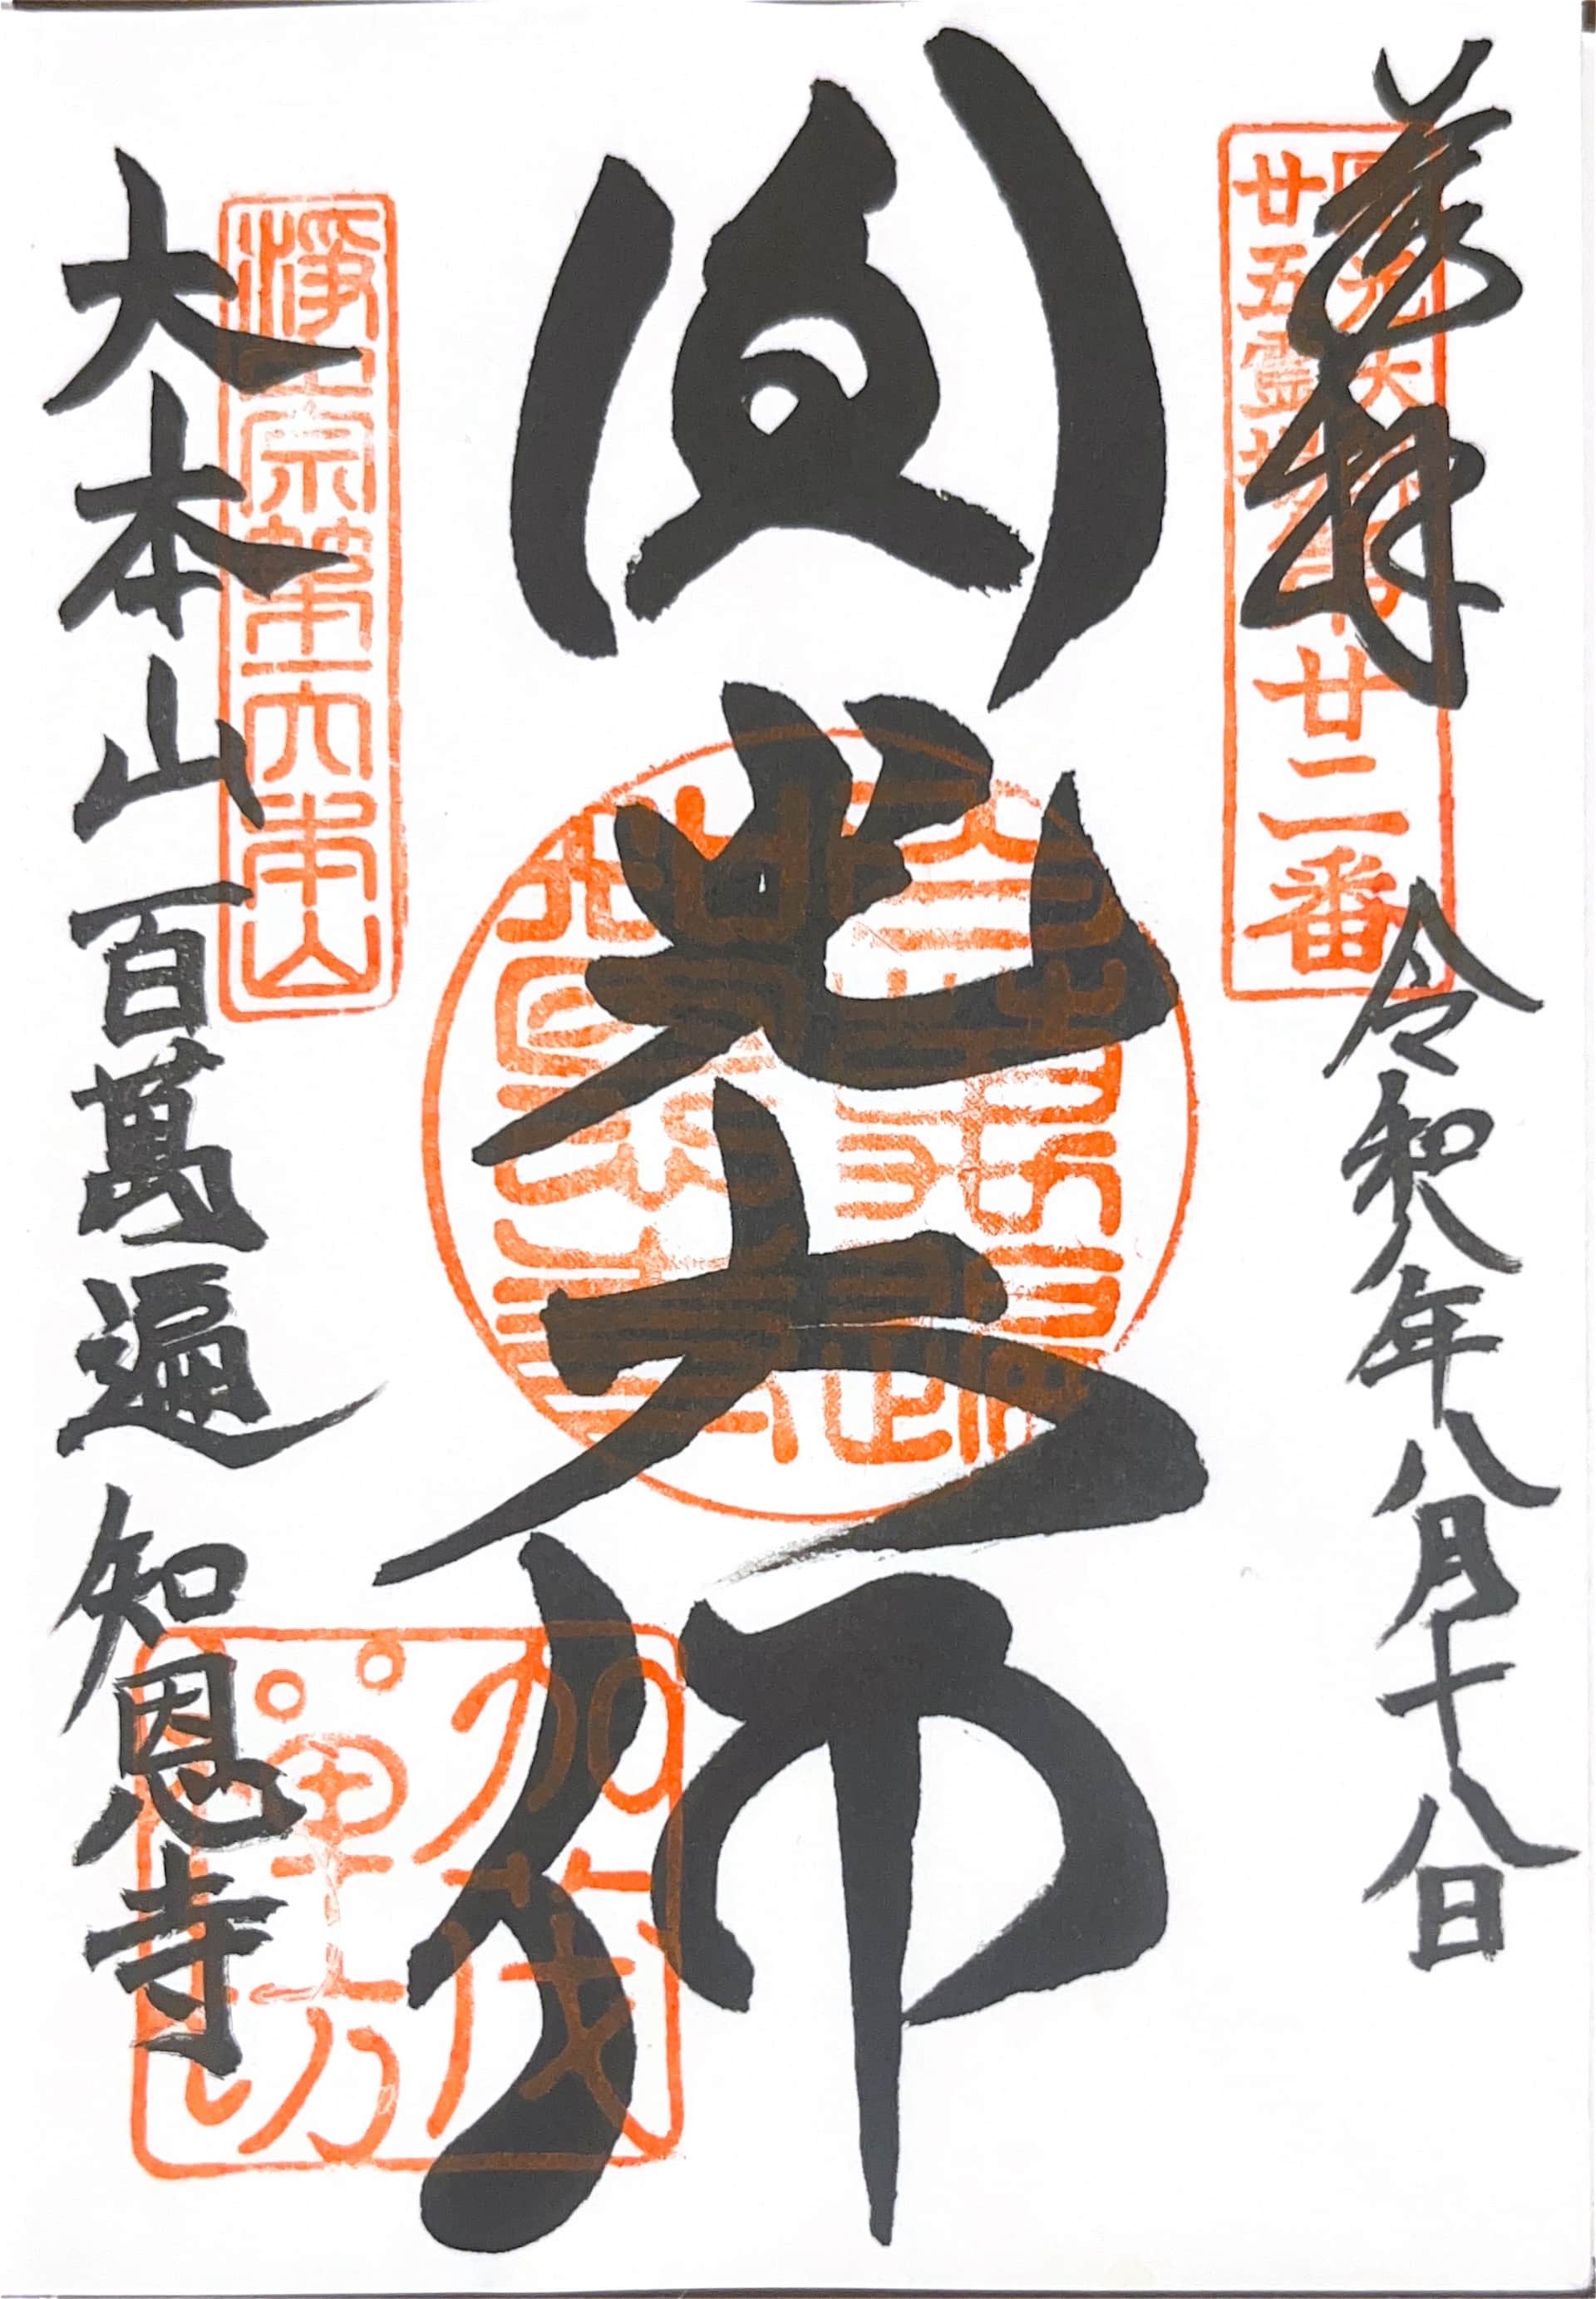 奉拝
令和八年八月十八日
圓光大師
廿五霊場
第廿二番
圓光大師
浄土宗第六本山
大本山百萬遍知恩寺
加茂
禅坊